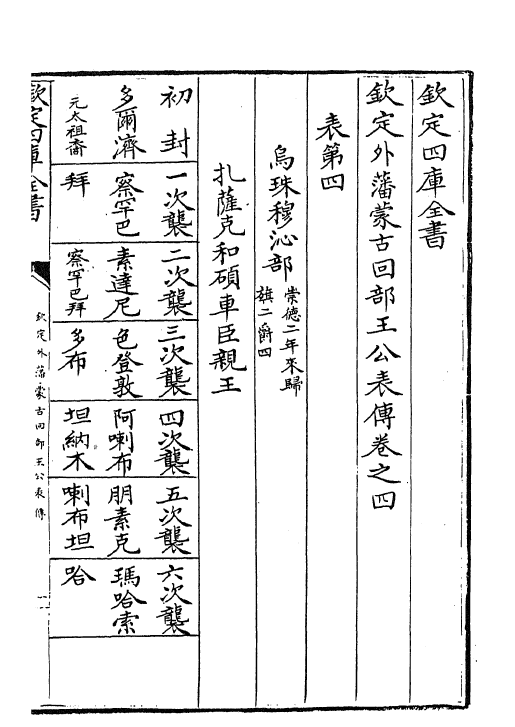 欽定四庫全書
欽定外藩蒙古回部王公表傳卷之四
表第四
烏珠穆沁部 崇德二年來歸
旗二爵四
扎薩克和碩車臣親王
初封 一次襲 二次襲 三次襲 四次襲 五次襲 六次襲
多爾濟 察罕巴 素達尼 色登敦 阿喇布 朋素克 瑪哈索
元太祖裔 拜 察罕巴拜 多布 坦納木 喇布坦 哈
欽定四庫全書
欽定外藩蒙古回部王公表傳
一